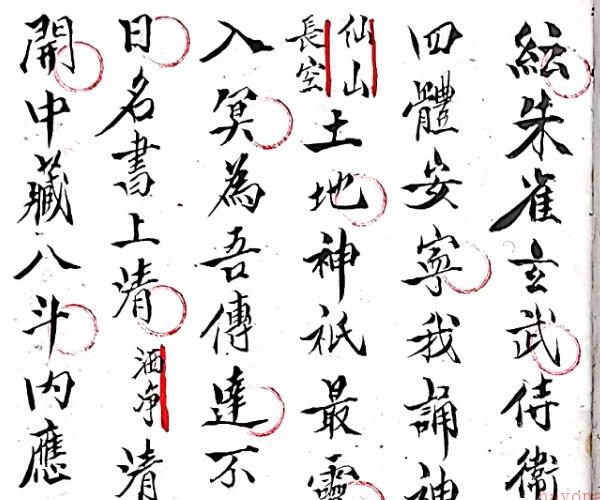 紜朱雀玄武侍衛
四體安寧我誦神
仙山長空土地神祇最靈
入冥為吾傳達不
日名書上清洒净清
開中藏八斗内應